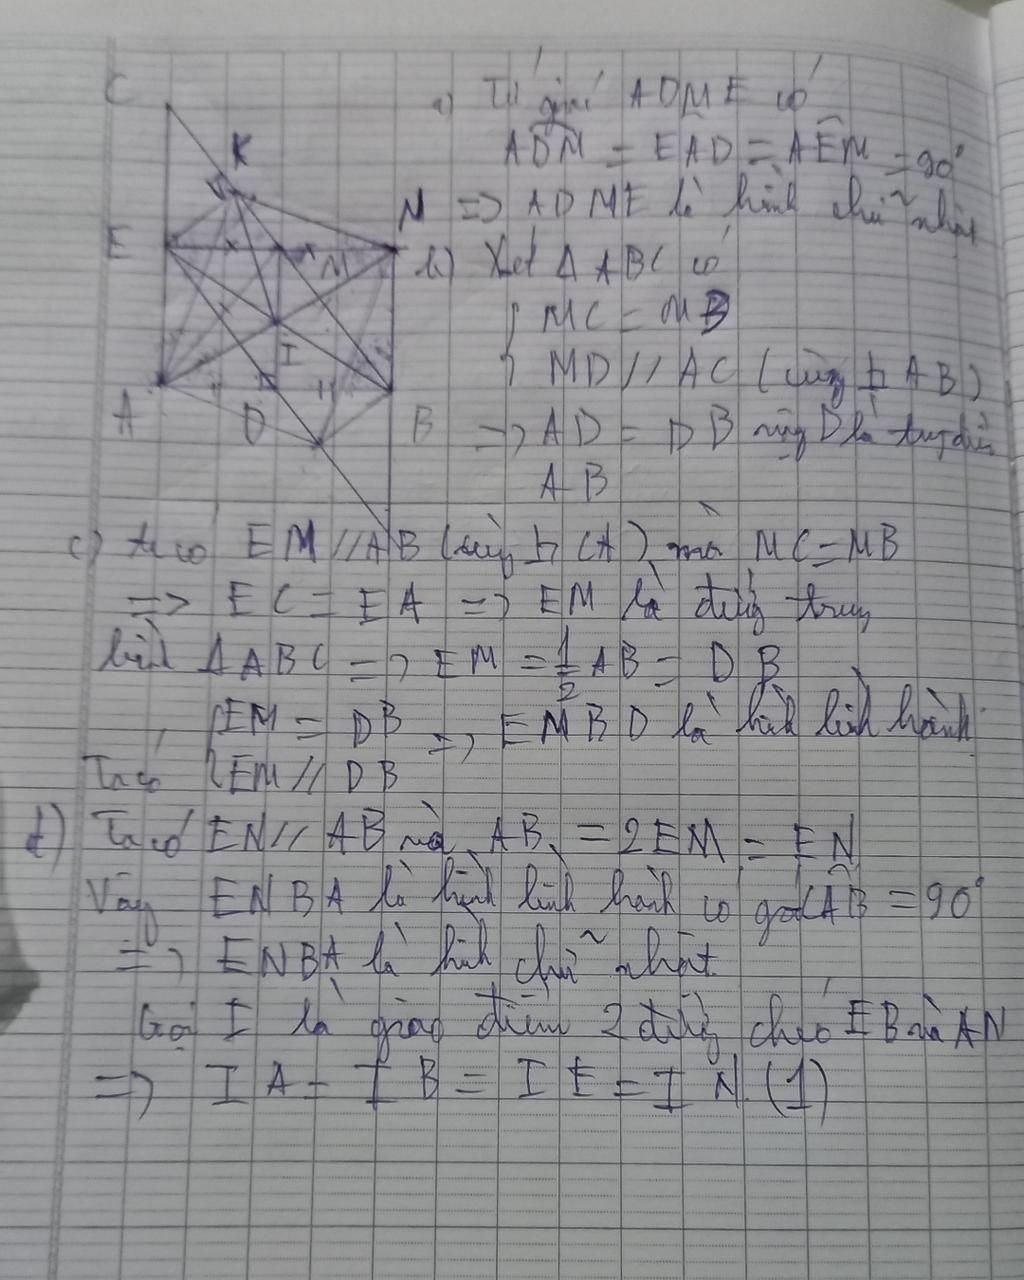 C
K
E
N
M
I
A
D
H
B
a) Tứ giác ADME có
ADM = EAD = AEM = 90°
=> ADME là hình chữ nhật
b) Xét Δ ABC có
MC = MB
MD // AC (cùng ⊥ AB)
=> AD = DB D là
AB
c) ta có EM // AB (cùng ⊥ CA) mà MC = MB
=> EC = EA => EM là đường trung
bình Δ ABC => EM = 1/2 AB = DB
EM = DB => EMBD là hình bình hành
Ta có EM // DB
d) Ta có EN // AB mà AB = 2EM = EN
Vậy ENBA là hình bình hành có góc CAB = 90°
=> ENBA là hình chữ nhật.
Gọi I là giao điểm 2 đường chéo EB và AN
=> IA = IB = IE = IN. (1)